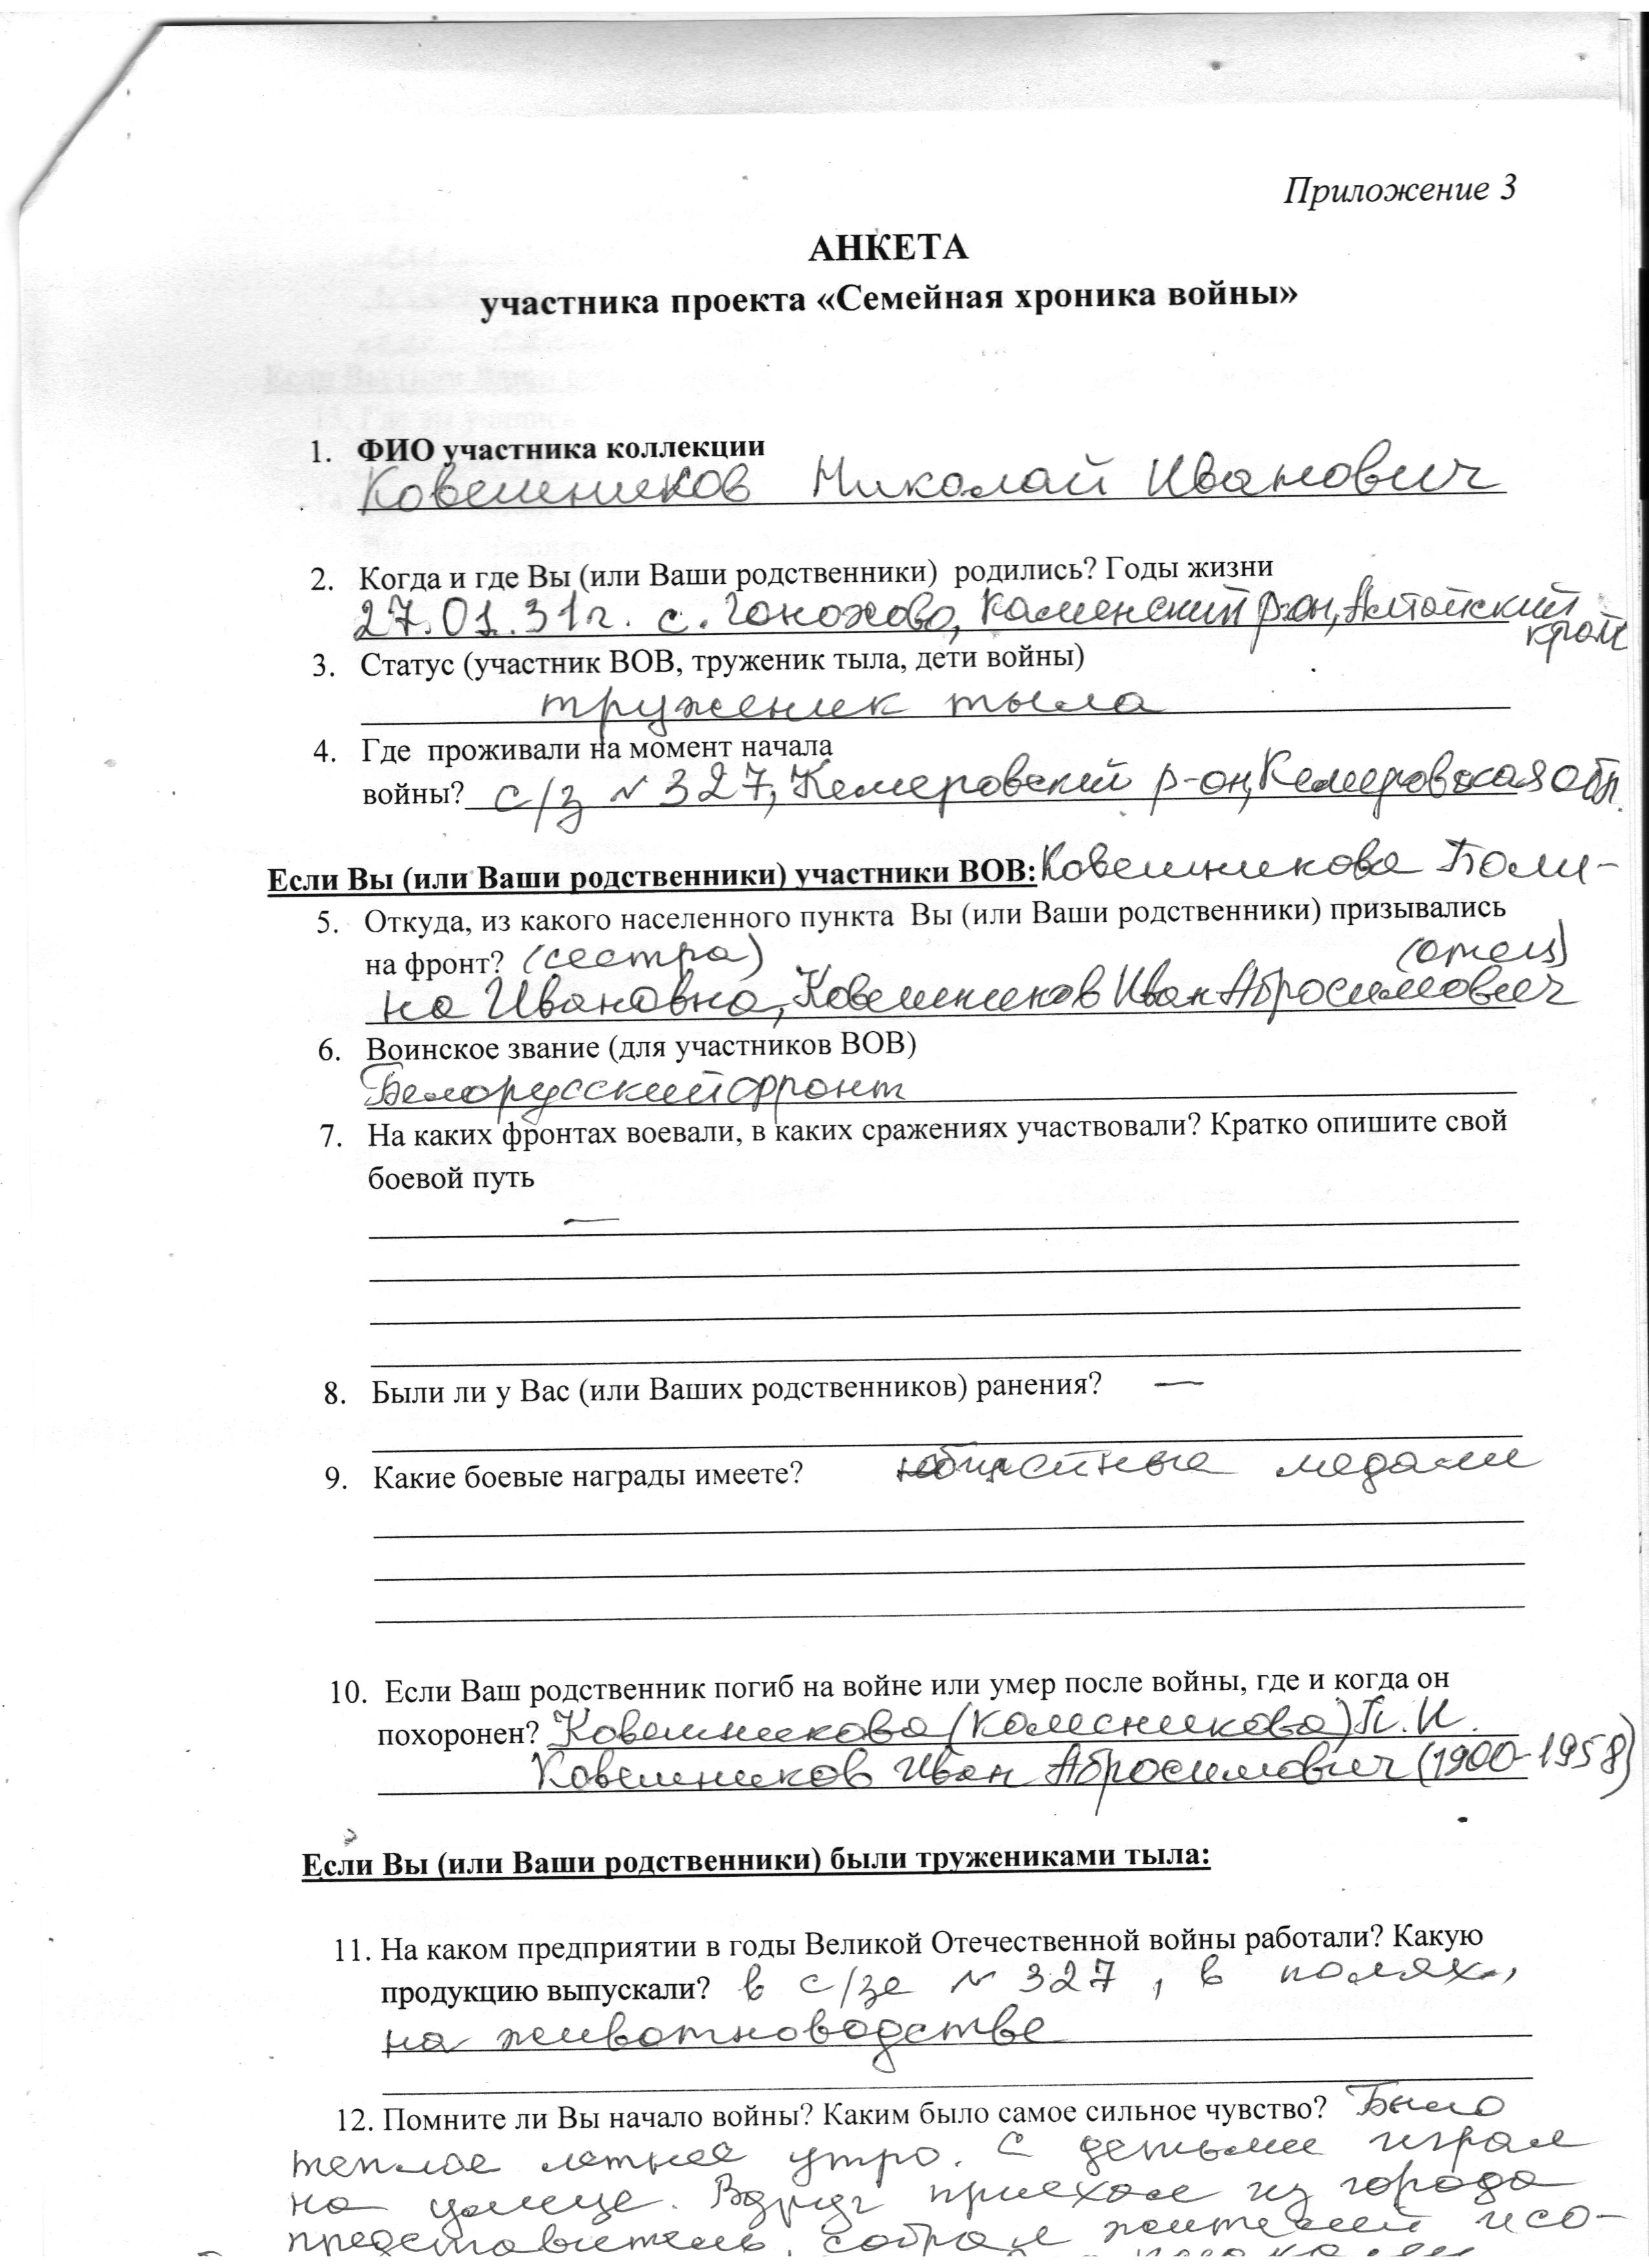 Приложение 3
АНКЕТА
участника проекта «Семейная хроника войны»
1. ФИО участника коллекции
Ковешников Николай Иванович
2. Когда и где Вы (или Ваши родственники) родились? Годы жизни
27.01.31г. с. Гонохово, Каменский р-он, Алтайский
край
3. Статус (участник ВОВ, труженик тыла, дети войны)
труженик тыла
4. Где проживали на момент начала
войны? с/з № 327, Кемеровский р-он, Кемеровская обл.
Если Вы (или Ваши родственники) участники ВОВ: Ковешникова Поли-
5. Откуда, из какого населенного пункта Вы (или Ваши родственники) призывались
на фронт? (сестра) (отец)
на Ивановна, Ковешников Иван Абросимович
6. Воинское звание (для участников ВОВ)
Белорусский фронт
7. На каких фронтах воевали, в каких сражениях участвовали? Кратко опишите свой
боевой путь
—
8. Были ли у Вас (или Ваших родственников) ранения? —
9. Какие боевые награды имеете? медали
10. Если Ваш родственник погиб на войне или умер после войны, где и когда он
похоронен? Ковешникова (Колесникова) П.И.
Ковешников Иван Абросимович (1900-1958)
Если Вы (или Ваши родственники) были тружениками тыла:
11. На каком предприятии в годы Великой Отечественной войны работали? Какую
продукцию выпускали? в с/зе № 327, в полях,
на животноводстве
12. Помните ли Вы начало войны? Каким было самое сильное чувство? Было
теплое летнее утро. С детьми играл
на улице. Вдруг приехал из города
представитель, собрал жителей и со-